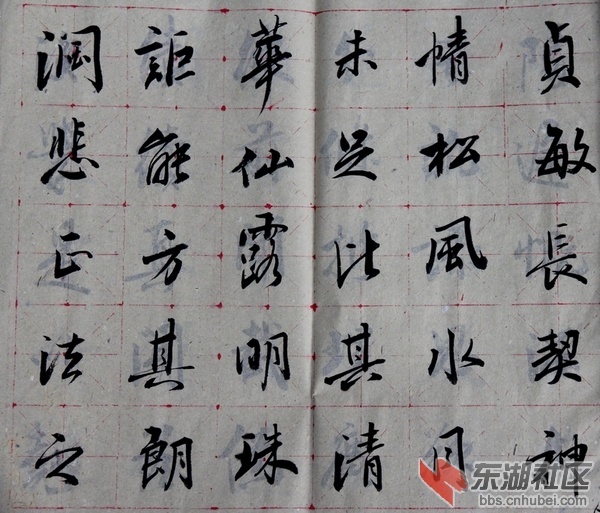 貞敏長契神
情松風水月
未足比其清
華仙露明珠
詎能方其朗
潤悲正法之
东湖社区
bbs.cnhubei.com